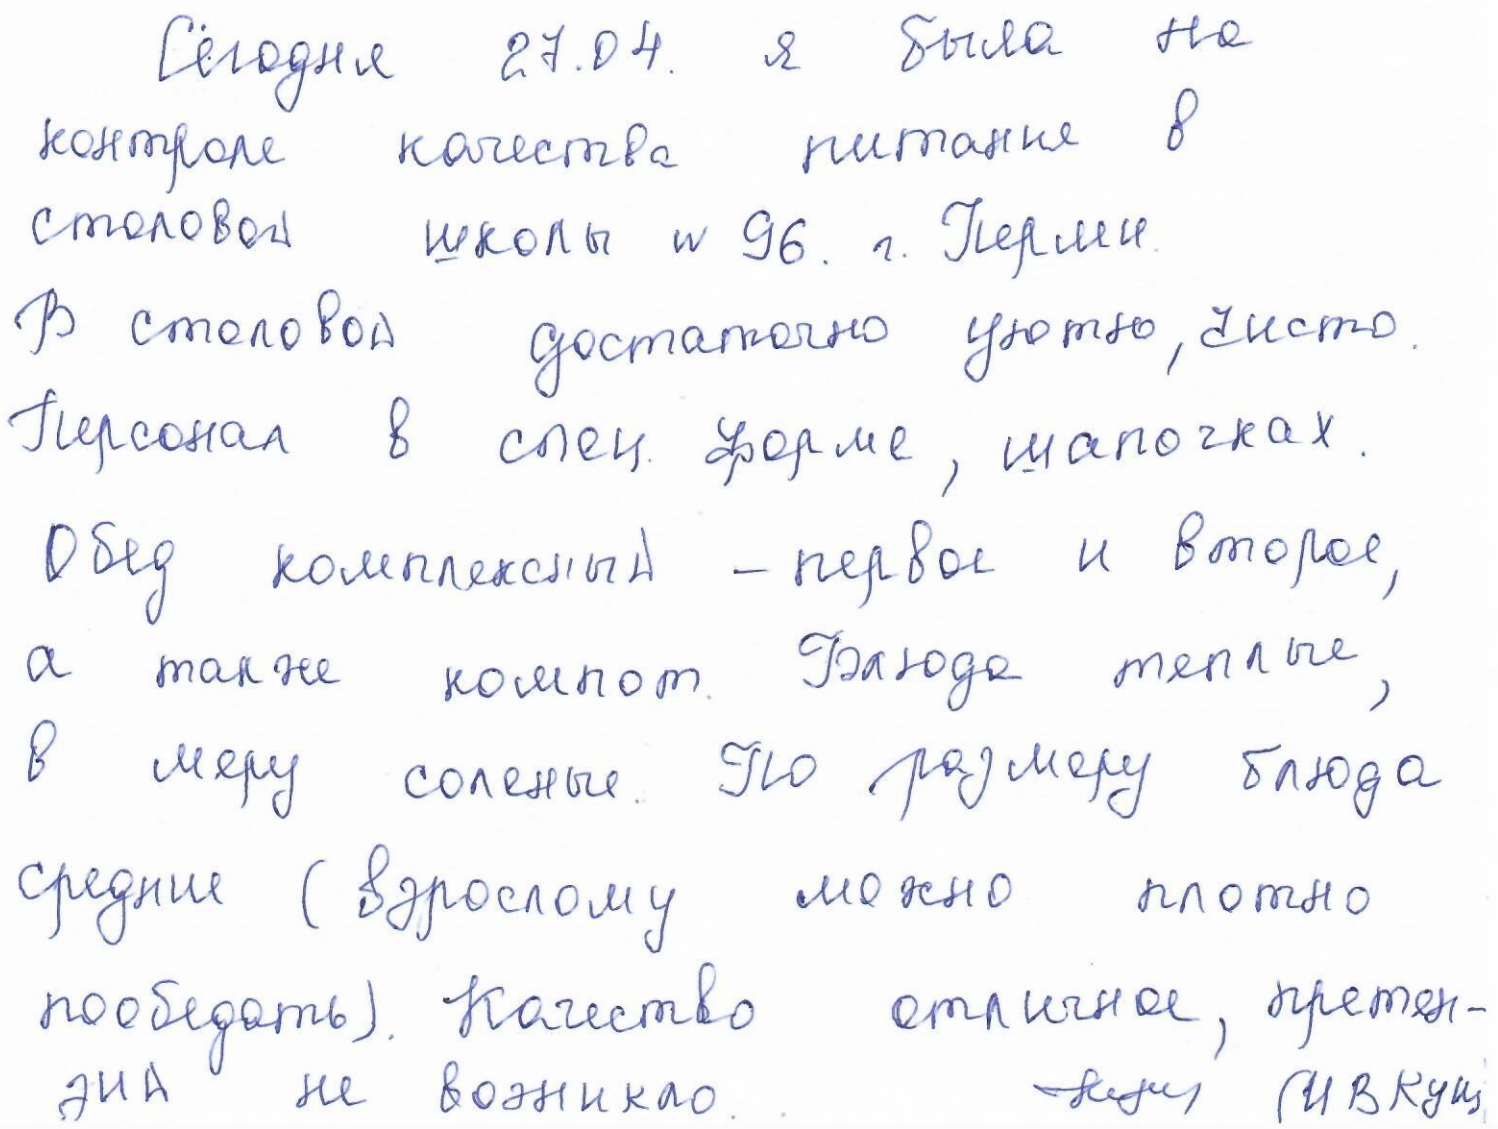 Сегодня 27.04. я была на
контроле качества питания в
столовой школы № 96. г. Перми.
В столовой достаточно уютно, чисто.
Персонал в спец. форме, шапочках.
Обед комплексный – первое и второе,
а также компот. Блюда теплые,
в меру соленые. По размеру блюда
средние (взрослому можно плотно
пообедать). Качество отличное, претен-
зий не возникло. (И В Кущ